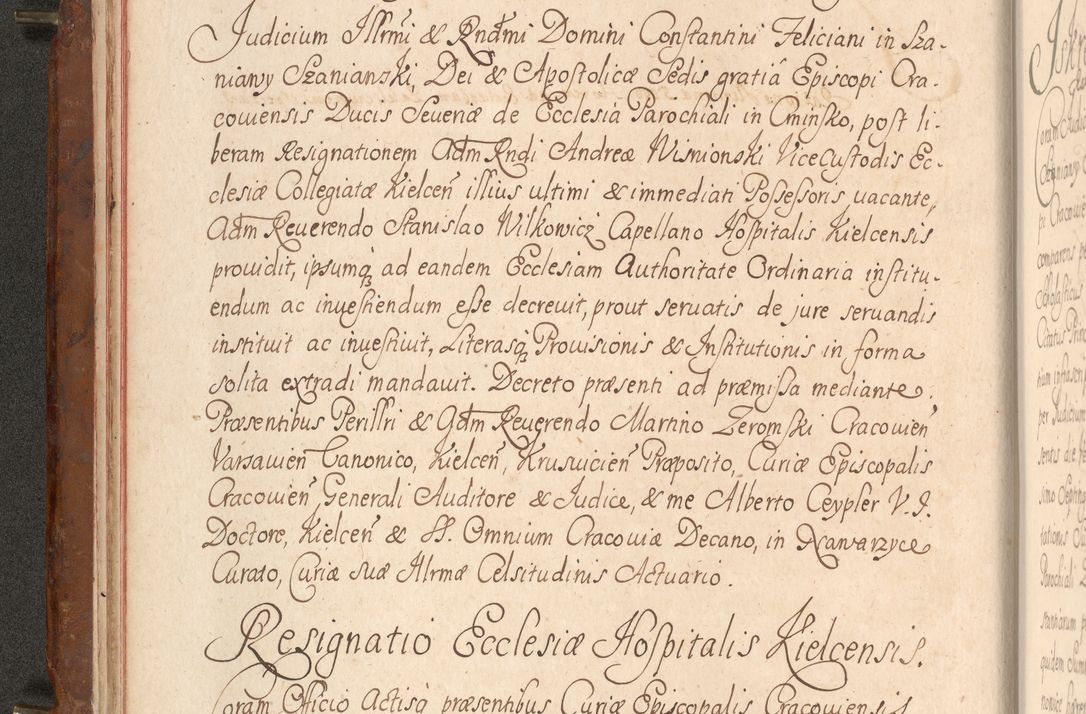 Judicium Illrmi & Rndmi Domini Constantini Feliciani in Sza-
niawy Szaniawski, Dei & Apostolicæ Sedis gratiâ Episcopi Cra-
coviensis Ducis Severiæ de Ecclesia Parochiali in Cminsko, post li-
beram Resignationem Adm Rndi Andreæ Wisnionski ViceCustodis Ec-
clesiæ Collegiatæ Kielceñ illius ultimi & immediati Possessoris vacante,
Adm Reverendo Stanislao Wilkowicz Capellano Hospitalis Kielcensis
providit, ipsumq ad eandem Ecclesiam Authoritate Ordinaria institu-
endum ac investiendum esse decrevit, prout servatis de jure servandis
instituit ac investivit, Literasq Provisionis & Institutionis in forma
solita extradi mandavit. Decreto præsenti ad præmissa mediante.
Præsentibus Perillri & Adm Reverendo Martino Zeromski Cracovień
Varsavień Canonico, Kielceñ, Kruswicień Præposito, Curiæ Episcopalis
Cracovień, Generali Auditore & Judice, & me Alberto Ceypler V. J.
Doctore, Kielceñ & SS. Omnium Cracoviæ Decano, in Xawarzyce
Curato, Curiæ suæ Illrmæ Celsitudinis Actuario.
Resignatio Ecclesiæ Hospitalis Kielcensis.
Coram Officio Actisq præsentibus Curiæ Episcopalis Cracoviensis